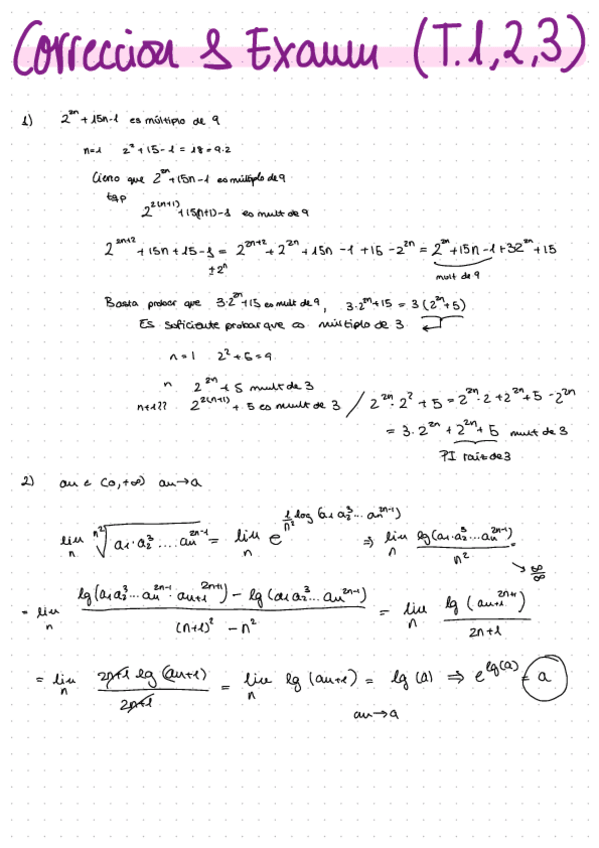 Correccion & Examen (T.1,2,3)
1) 2^{2n} + 15n-1 es múltiplo de 9
n=1 2^2 + 15 - 1 = 18 = 9·2
Cierto que 2^{2n} + 15n - 1 es múltiplo de 9
tqp
2^{2(n+1)} + 15(n+1) - 1 es mult de 9
2^{2n+2} + 15n + 15 - 1 = 2^{2n+2} + 2^{2n} + 15n - 1 + 15 - 2^{2n} = 2^{2n} + 15n - 1 + 3 2^{2n} + 15
± 2^n mult de 9
Basta probar que 3·2^{2n} + 15 es mult de 9, 3·2^{2n} + 15 = 3(2^{2n} + 5)
Es suficiente probar que es múltiplo de 3
n=1 2^2 + 5 = 9
n 2^{2n} + 5 mult de 3
n+1?? 2^{2(n+1)} + 5 es mult de 3 / 2^{2n}·2^2 + 5 = 2^{2n}·2 + 2^{2n} + 5 - 2^{2n}
= 3·2^{2n} + 2^{2n} + 5 mult de 3
PI de 3
2) an ∈ (0,+∞) an → a
lim_n \sqrt[n^2]{a_1·a_2^3 .... a_n^{2n-1}} = lim_n e^{\frac{1}{n^2} log(a_1 a_2^3 ... a_n^{2n-1})} ⇒ lim_n \frac{lg(a_1·a_2^3 ... a_n^{2n-1})}{n^2} =
→ \frac{∞}{∞}
= lim_n \frac{lg(a_1 a_2^3 ... a_n^{2n-1} · a_{n+1}^{2n+1}) - lg(a_1 a_2^3 ... a_n^{2n-1})}{(n+1)^2 - n^2} = lim_n \frac{lg(a_{n+1}^{2n+1})}{2n+1}
= lim_n \frac{2n+1 lg(a_{n+1})}{2n+1} = lim_n lg(a_{n+1}) = lg(a) ⇒ e^{lg(a)} = a
an → a